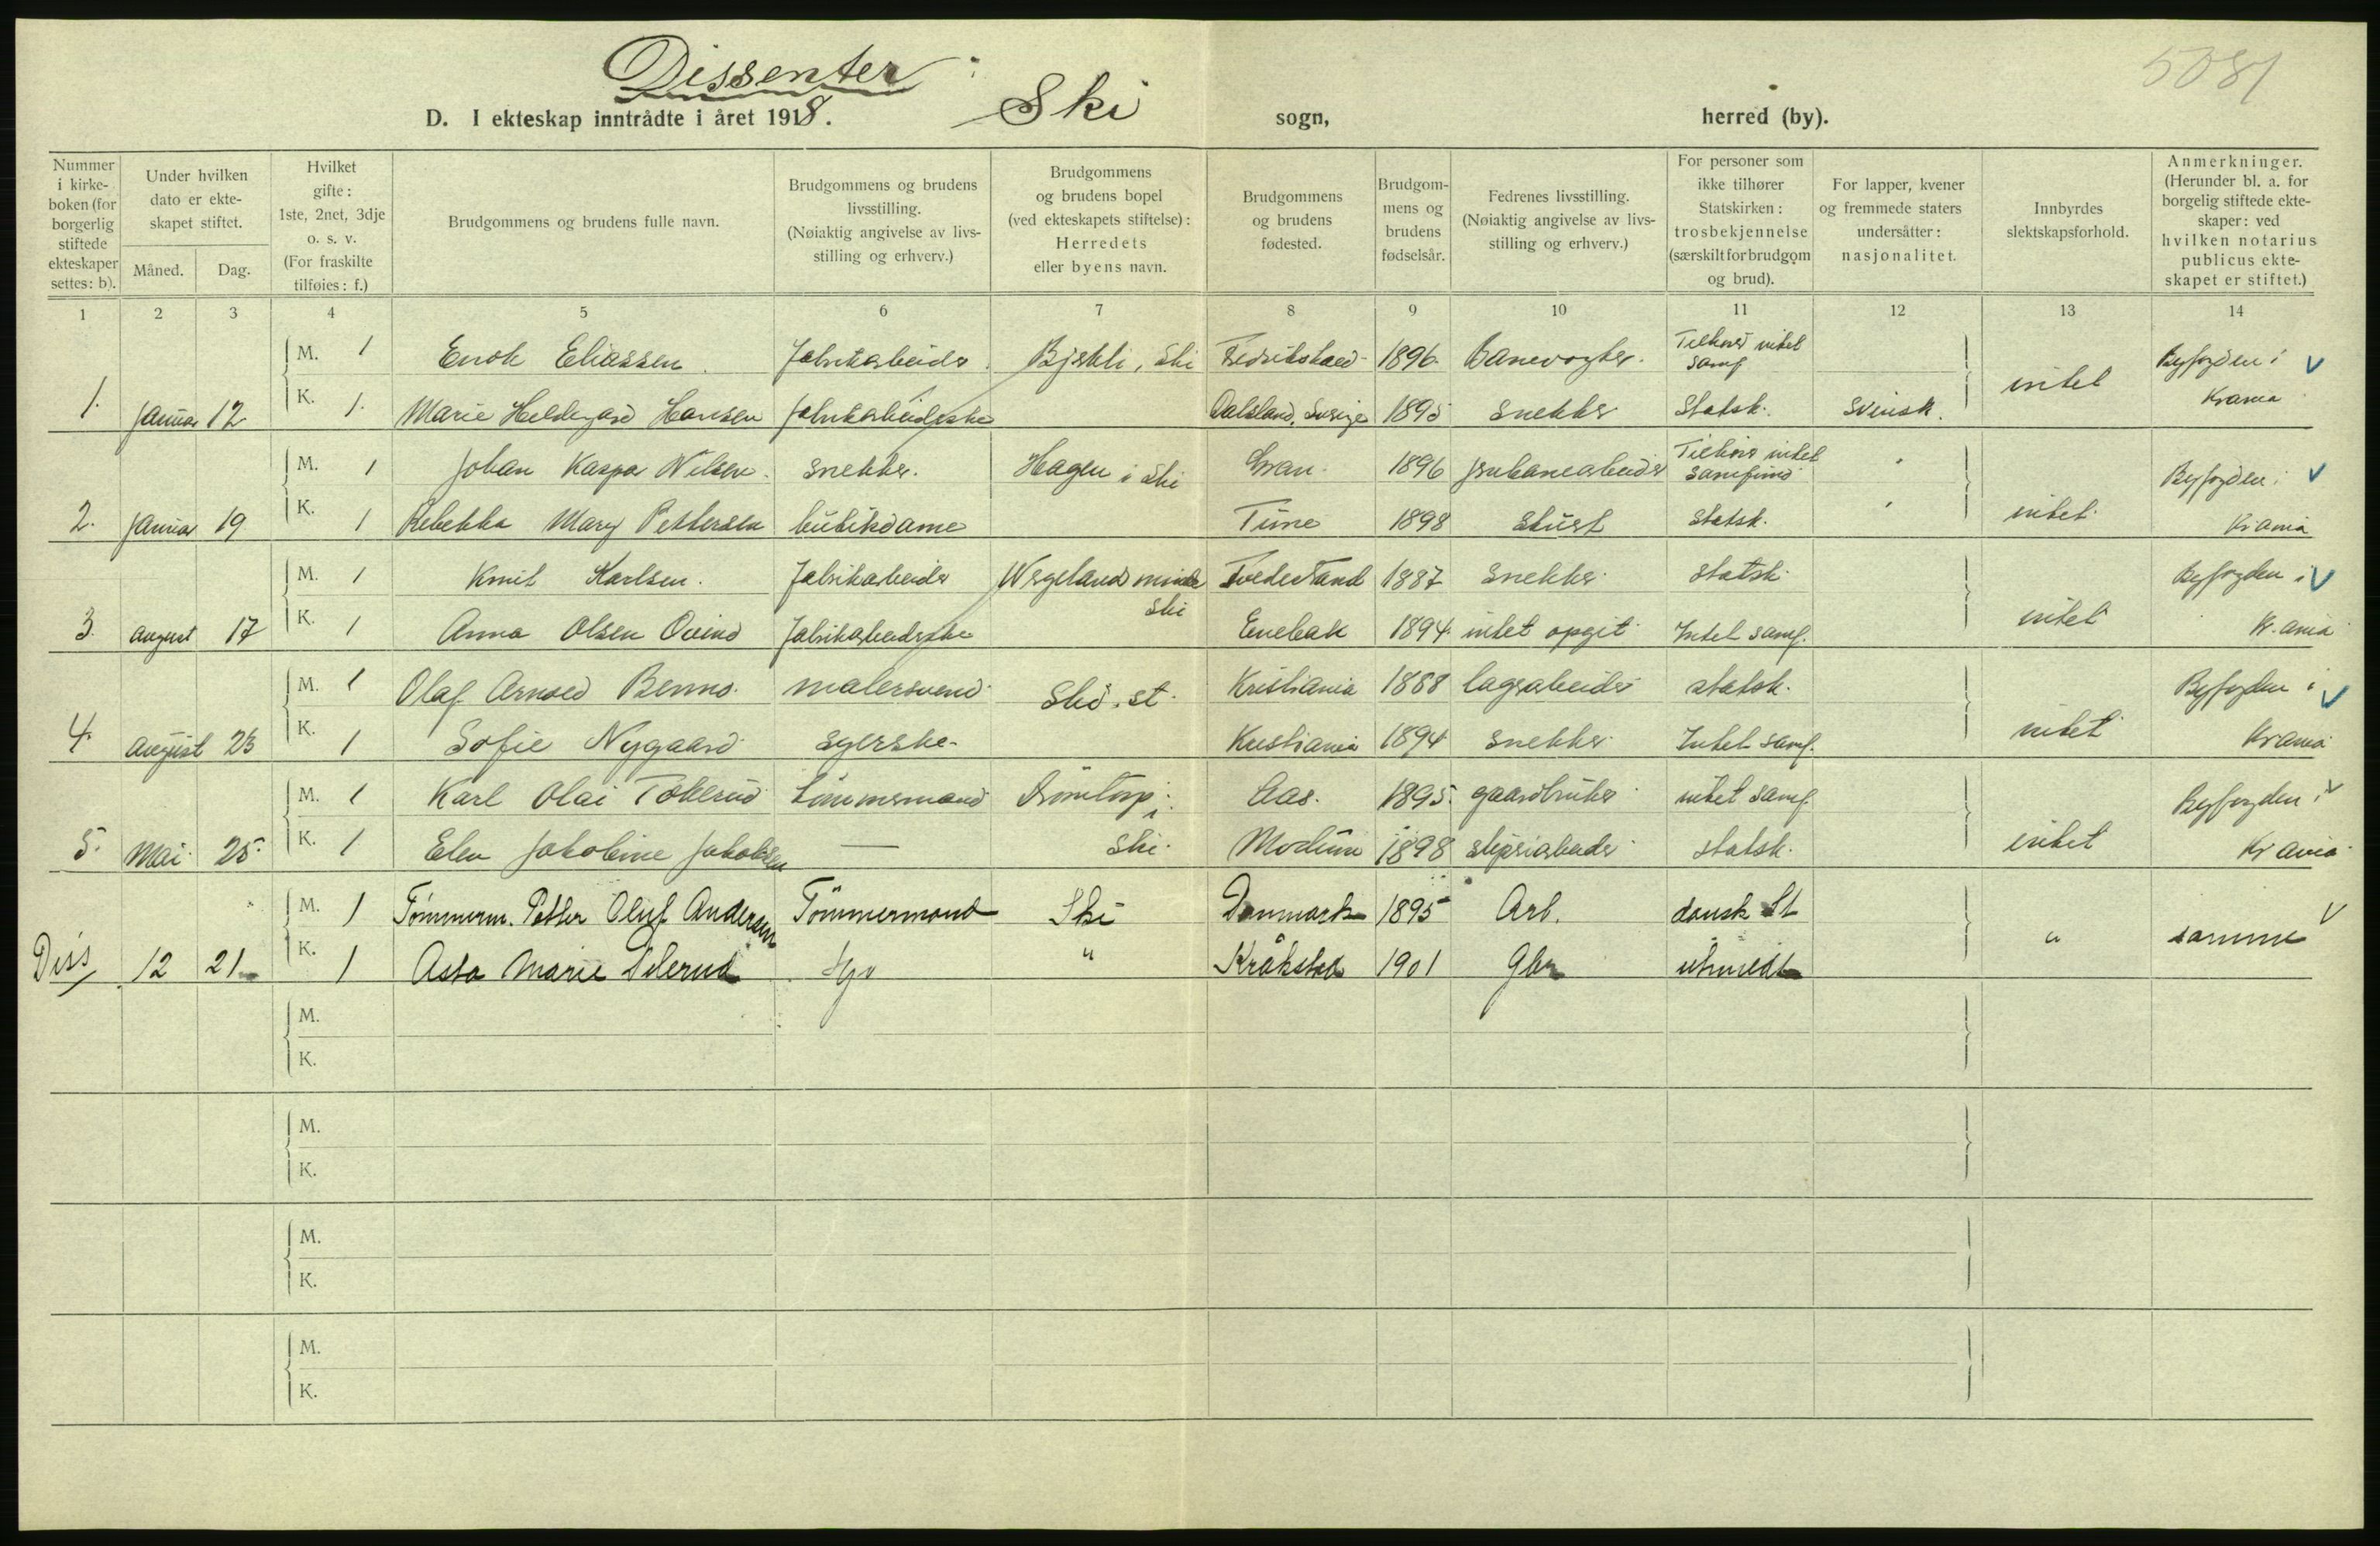 Dissenter:
5081
D. I ekteskap inntrådte i året 1918. Ski sogn, herred (by).
Nummer i kirkeboken (for borgerlig stiftede ekteskaper settes: b).
Under hvilken dato er ekteskapet stiftet.
Måned. Dag.
Hvilket gifte: 1ste, 2net, 3dje o. s. v. (For fraskilte tilføies: f.)
Brudgommens og brudens fulle navn.
Brudgommens og brudens livsstilling. (Nøiaktig angivelse av livsstilling og erhverv.)
Brudgommens og brudens bopel (ved ekteskapets stiftelse): Herredets eller byens navn.
Brudgommens og brudens fødested.
Brudgommens og brudens fødselsår.
Fedrenes livsstilling. (Nøiaktig angivelse av livsstilling og erhverv.)
For personer som ikke tilhører Statskirken: trosbekjennelse (særskilt for brudgom og brud).
For lapper, kvener og fremmede staters undersåtter: nasjonalitet.
Innbyrdes slektskapsforhold.
Anmerkninger. (Herunder bl. a. for borgelig stiftede ekteskaper: ved hvilken notarius publicus ekteskapet er stiftet.)
1 2 3 4 5 6 7 8 9 10 11 12 13 14
M. 1 Enok Eliassen. Fabrikarbeider. Bjerkli, Ski Fredrikshald 1896. Banevogter. Tilhører intet samf Byfogden i
1. Januar 12 K. 1. Marie Hildegard Hansen Fabrikarbeiderske Dalsland, Sverige 1895 Snekker Statsk. Svensk. intet Krania
M. 1 Johan Kaspar Nilsen. Snekker. Hagen i Ski Gran. 1896 jernbanearbeider Tilhører intet samfund Byfogden i
2. Januar 19 K. 1 Rebekka Mary Pettersen butikdame Tune 1898 Statsk. intet Krania
M. 1 Knut Karlsen. Fabrikarbeider Wergelandsminde Ski Tvedestrand 1887 Snekker Statsk Byfogden i
3. August 17 K. 1 Anna Olsen Fabrikarbeiderske Enebak 1894 intet opgit Intet samf. intet Kr.ania
M. 1 Olaf Arnold Benno. malersvend Ski. st. Kristiania 1888 lagerarbeider statsk. Byfogden i
4. August 23 K. 1 Sofie Nygaard syerske. Kristiania 1894 Snekker Intet samf. intet Krania
M. 1 Karl Olai Tokerud tømmermand Drømtorp i Ski. Aas. 1895. gaardbruker intet samf. Byfogden i
5. Mai 25. K. 1 Elen Jakobine Jakobsen — Modum 1898 sliperiarbeider statsk. intet Krania
M. 1 Tømmerm. Petter Oluf Andersen Tømmermand Ski Danmark 1895 Arb. dansk St
Diss 12 21 K. 1 Asta Marie " Kråkstad 1901 Gbr utmeldt " samme
M.
K.
M.
K.
M.
K.
M.
K.